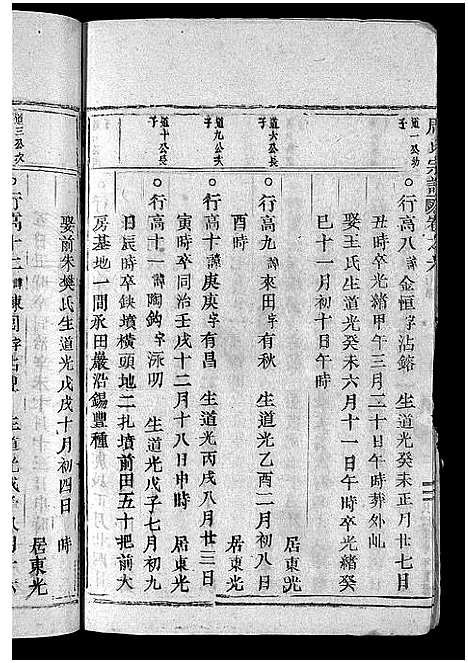 周氏宗譜
道一公幼子
○行高八諱金恒字沾鎔　生道光癸未正月廿七日
丑時卒光緒甲午三月二十日午時葬外屾
娶王氏生道光癸未六月十一日午時卒光緒癸
巳十一月初十日午時
居東光
道六公長子
○行高九諱來田字有秋　生道光乙酉二月初八日
居東光
道九公次子
○行高十諱庚庚字有昌　生道光丙戌八月廿三日
寅時卒同治壬戌十二月十八日申時　居東光
道十公長子
○行高十一諱陶鈎字泳叨　生道光戊子七月初九
日辰時卒鋏墳橫頭地二扎墳前田五十把前大
房基地一間永田嚴沿錫豐種
娶前朱樊氏生道光戊戌十月初四日　時
居東光
道三公次
○行高十二諱